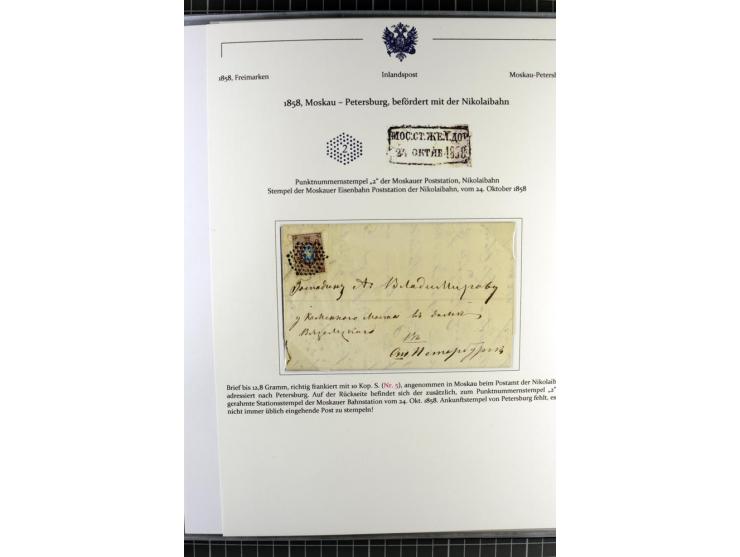 1858, Freimarken Inlandspost Moskau-Petersb
1858, Moskau – Petersburg, befördert mit der Nikolaibahn
2
МОС.СТ.ЖЕЛ.ДОР
24 ОКТЯБ 1858
Punktnummernstempel „2" der Moskauer Poststation, Nikolaibahn
Stempel der Moskauer Eisenbahn Poststation der Nikolaibahn, vom 24. Oktober 1858
Господину А. Владимирову
у Каменного моста въ домѣ
въ
Санктпетербургъ
Brief bis 12,8 Gramm, richtig frankiert mit 10 Kop. S. (Nr. 5), angenommen in Moskau beim Postamt der Nikolaib
adressiert nach Petersburg. Auf der Rückseite befindet sich der zusätzlich, zum Punktnummernstempel „2"
gerahmte Stationsstempel der Moskauer Bahnstation vom 24. Okt. 1858. Ankunftstempel von Petersburg fehlt, es
nicht immer üblich eingehende Post zu stempeln!